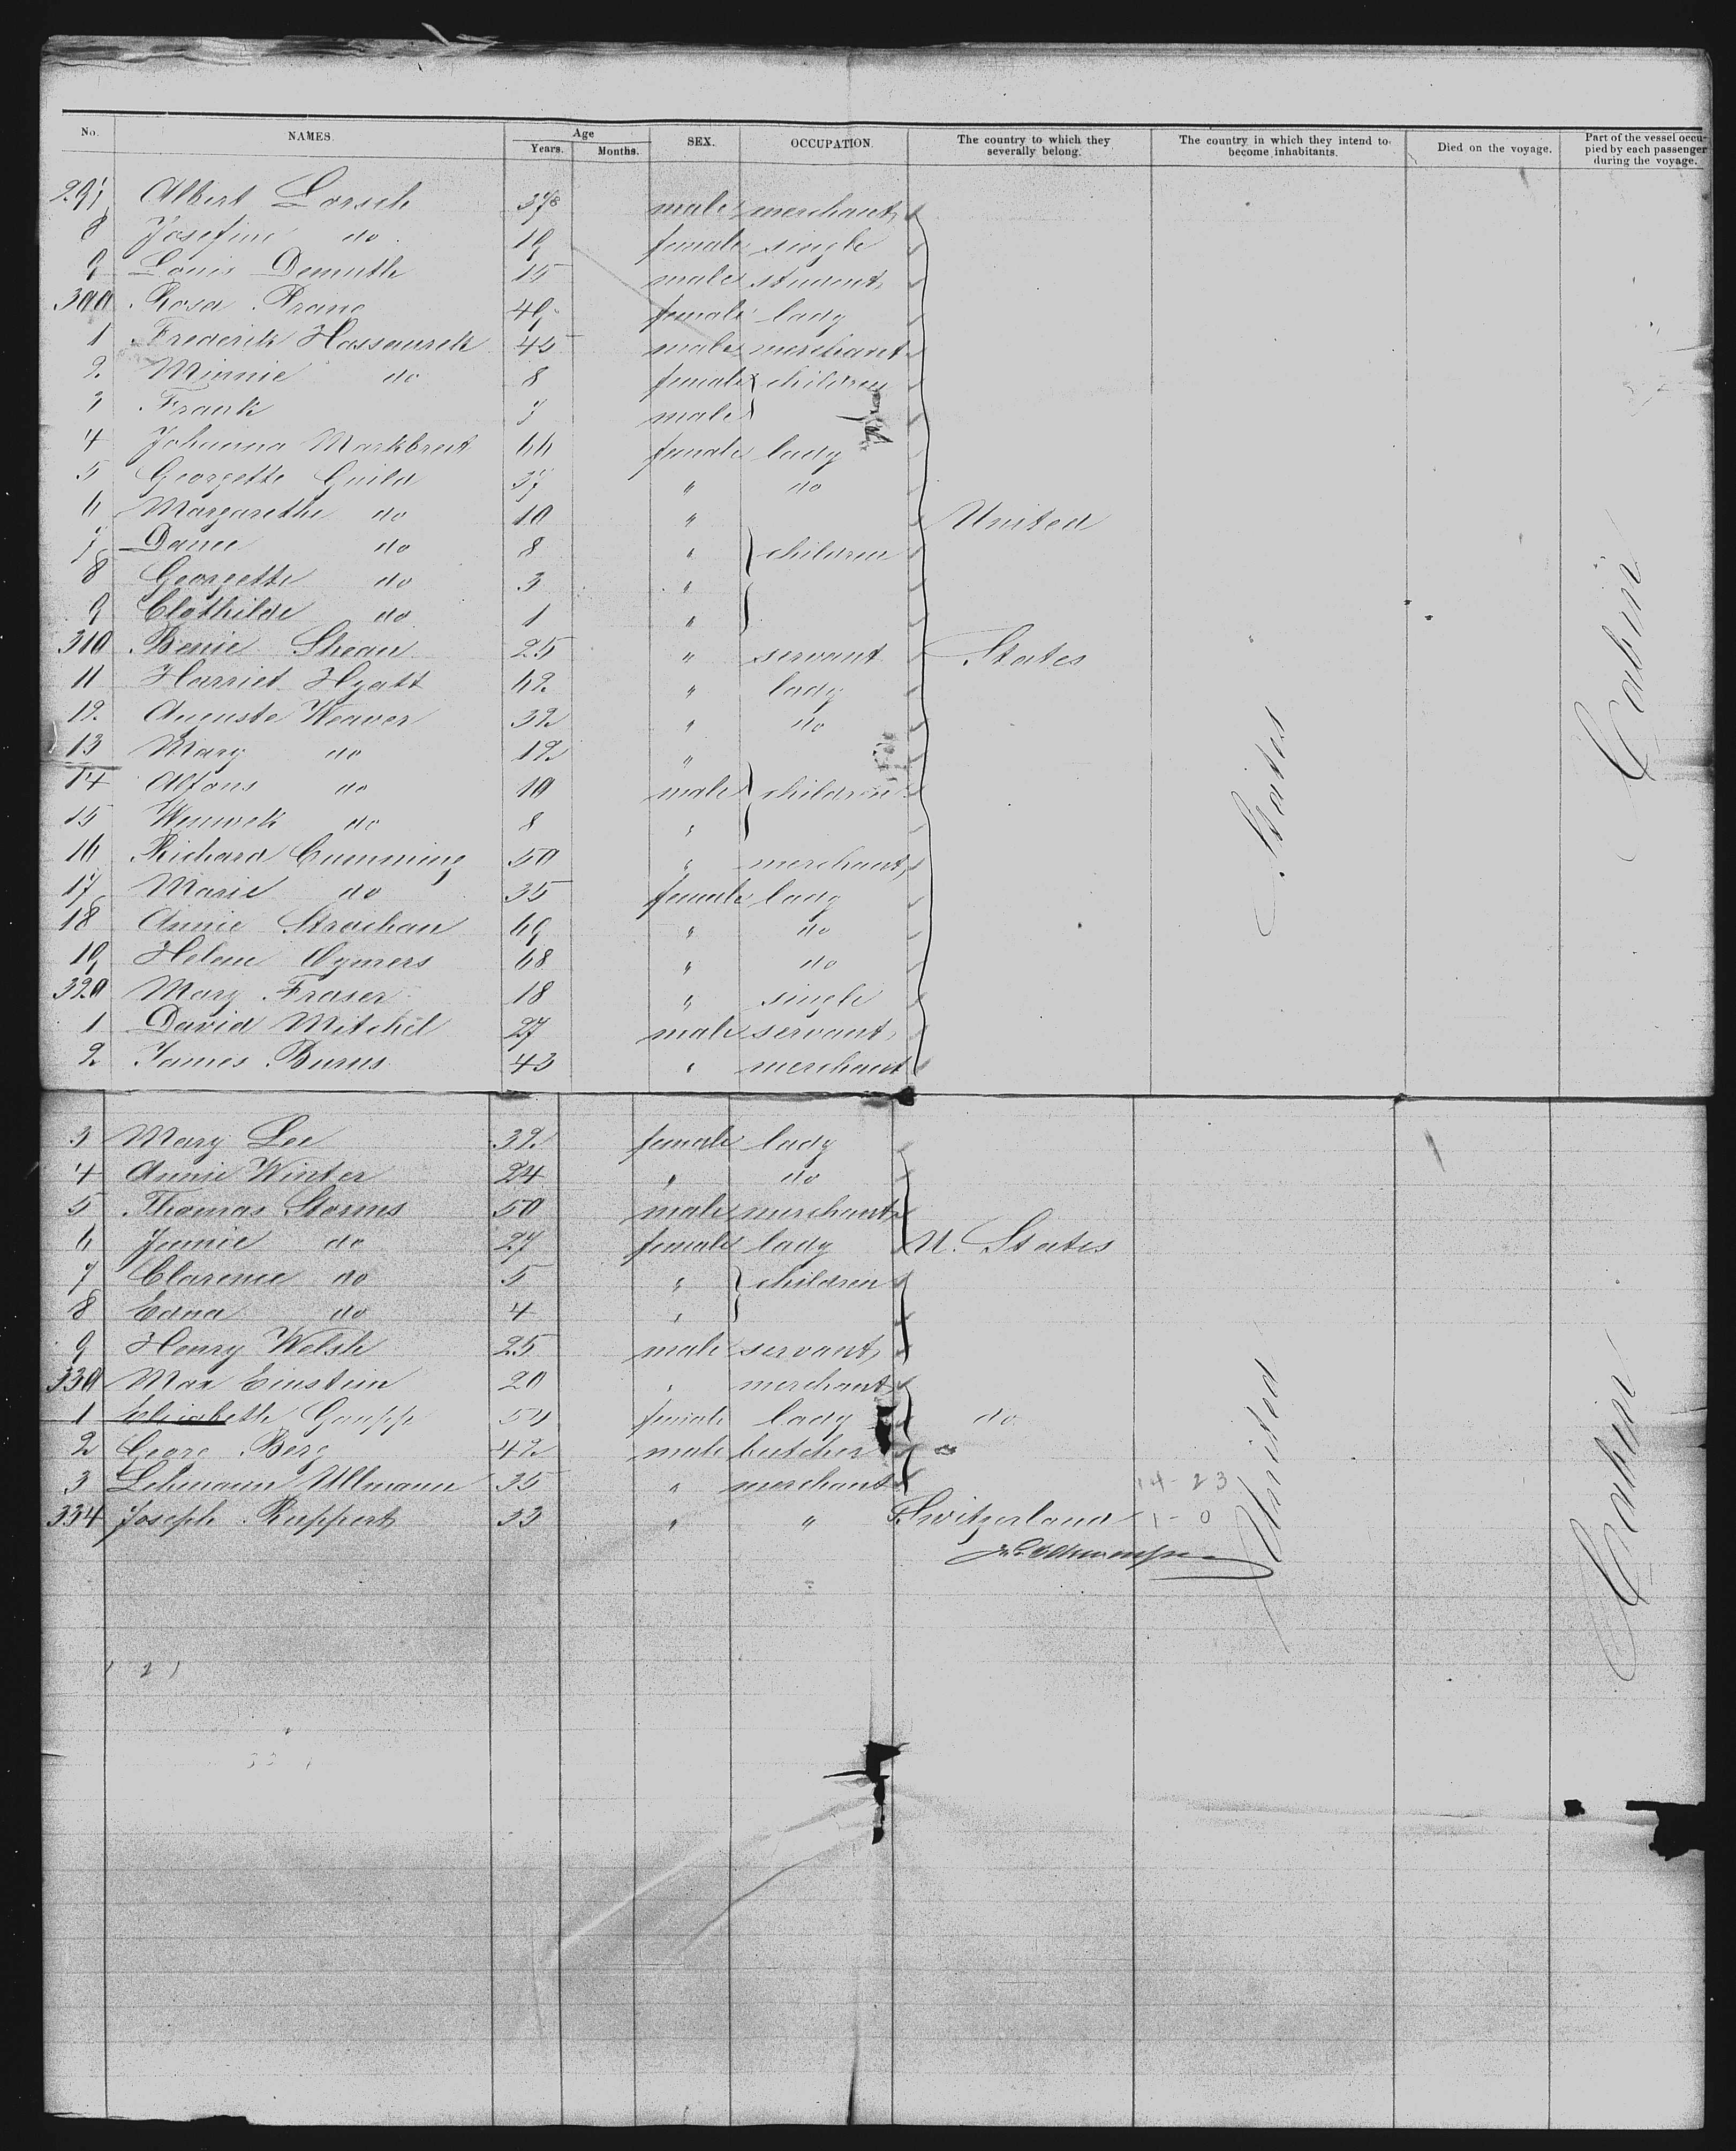 No. NAMES. Age Years. Months. SEX. OCCUPATION. The country to which they severally belong. The country in which they intend to become inhabitants. Died on the voyage. Part of the vessel occupied by each passenger during the voyage.
297 Albert Lorsch 37 male merchant
8 Josefine do 19 female single
9 Louis Demuth 15 male student
300 Rosa Prang 49 female lady
1 Frederik Hassaurek 45 male merchant
2 Minnie do 8 female children
3 Frank 7 male
4 Johanna Markbreit 66 female lady
5 Georgette Guild 37 " do
6 Margarethe do 10 " United
7 do 8 " children
8 Georgette do 3 "
9 Clothilde do 1 "
310 Shean 25 " servant States
11 Harriet Hyatt 62 " lady
12 Auguste Weaver 32 " do
13 Mary do 12 "
14 Alfons do 10 male children
15 do 8 "
16 Richard Cumming 50 " merchant
17 Marie do 35 female lady
18 Annie Strachan 69 " do
19 Helene 68 " do
320 Mary Fraser 18 " single
1 David Mitchel 27 male servant
2 James Burns 43 " merchant
States
Cabin
3 Mary Lee 32 female lady
4 Annie Winter 24 " do
5 Thomas Storms 50 male merchant
6 Jennie do 27 female lady U. States
7 Clarence do 5 " children
8 Edna do 4 "
9 Henry Welsh 25 male servant
330 Max Einstein 20 " merchant
1 Elisabeth Gaupp 54 female lady do
2 Georg Berg 42 male butcher
3 Lehmann Ullmann 35 " merchant 14-23
334 Joseph Ruppert 33 " " Switzerland 1-0
United
Cabin